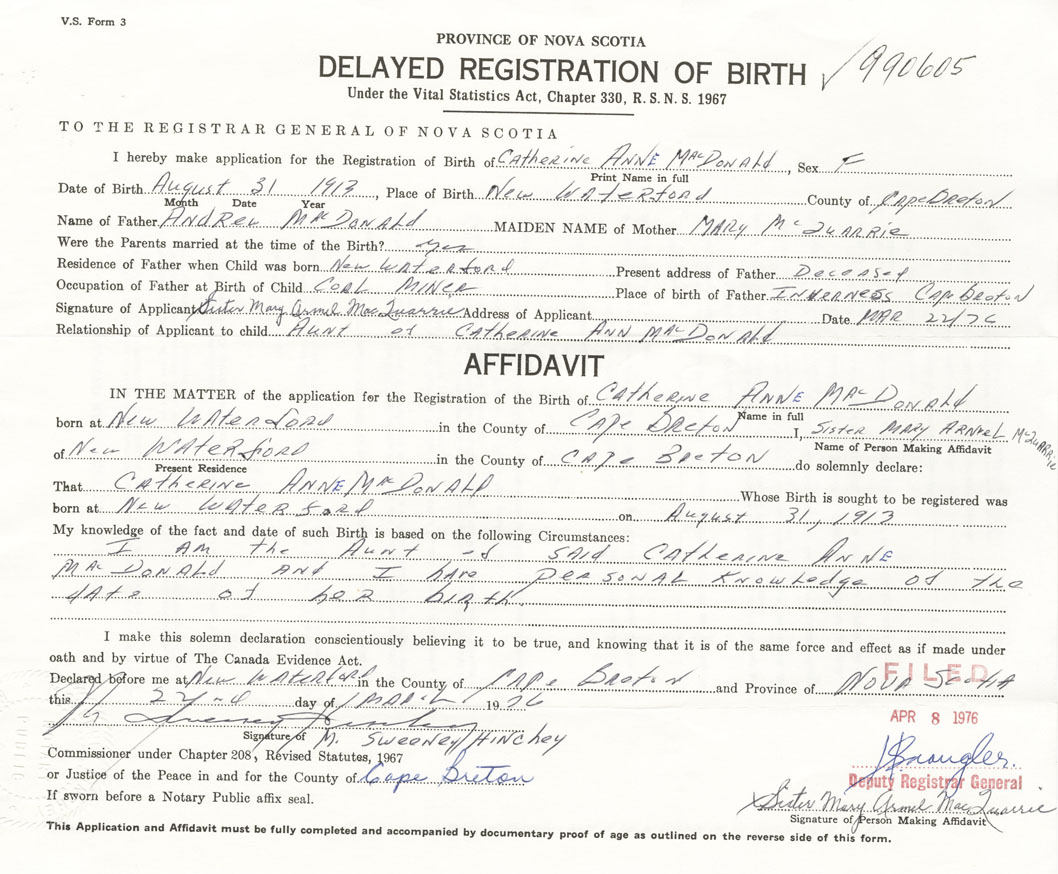 V.S. Form 3
PROVINCE OF NOVA SCOTIA
DELAYED REGISTRATION OF BIRTH ✓990605
Under the Vital Statistics Act, Chapter 330, R.S.N.S. 1967
TO THE REGISTRAR GENERAL OF NOVA SCOTIA
I hereby make application for the Registration of Birth of Catherine Anne MacDonald, Sex F
Print Name in full
Date of Birth August 31 1913, Place of Birth New Waterford County of Cape Breton
Month Date Year
Name of Father Andrew MacDonald MAIDEN NAME of Mother Mary McQuarrie
Were the Parents married at the time of the Birth? yes
Residence of Father when Child was born New Waterford Present address of Father Deceased
Occupation of Father at Birth of Child Coal Miner Place of birth of Father Inverness Cape Breton
Signature of Applicant Sister Mary Armel MacQuarrie Address of Applicant Date Mar 22/76
Relationship of Applicant to child Aunt of Catherine Ann MacDonald
AFFIDAVIT
IN THE MATTER of the application for the Registration of the Birth of Catherine Anne MacDonald
Name in full
born at New Waterford in the County of Cape Breton I, Sister Mary Armel McQuarrie
Name of Person Making Affidavit
of New Waterford in the County of Cape Breton do solemnly declare:
Present Residence
That Catherine Anne MacDonald Whose Birth is sought to be registered was
born at New Waterford on August 31, 1913
My knowledge of the fact and date of such Birth is based on the following Circumstances:
I am the Aunt of said Catherine Anne
MacDonald and I have personal knowledge of the
date of her birth.
I make this solemn declaration conscientiously believing it to be true, and knowing that it is of the same force and effect as if made under
oath and by virtue of The Canada Evidence Act.
Declared before me at New Waterford in the County of Cape Breton and Province of Nova Scotia
FILED
this 22nd day of March 1976
APR 8 1976
Signature of M. Sweeney Hinchey
Commissioner under Chapter 208, Revised Statutes, 1967
or Justice of the Peace in and for the County of Cape Breton
Deputy Registrar General
If sworn before a Notary Public affix seal.
Sister Mary Armel MacQuarrie
Signature of Person Making Affidavit
This Application and Affidavit must be fully completed and accompanied by documentary proof of age as outlined on the reverse side of this form.